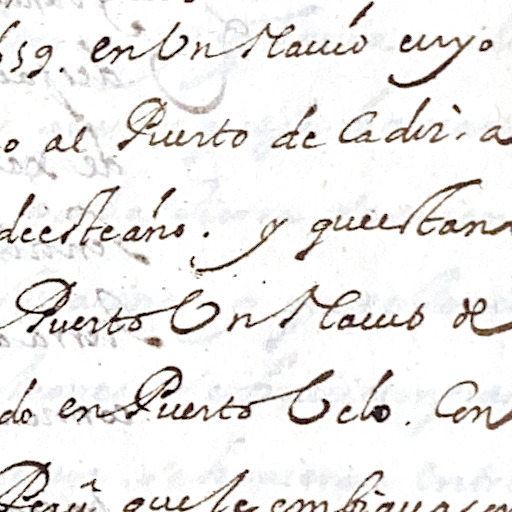 659. en Un Nauio cuyo
o al Puerto de Cadiz. a
deesteaño. y queestan
Puerto Un Nauio de
do en Puerto Uelo. Con
Peru que se embiaua con